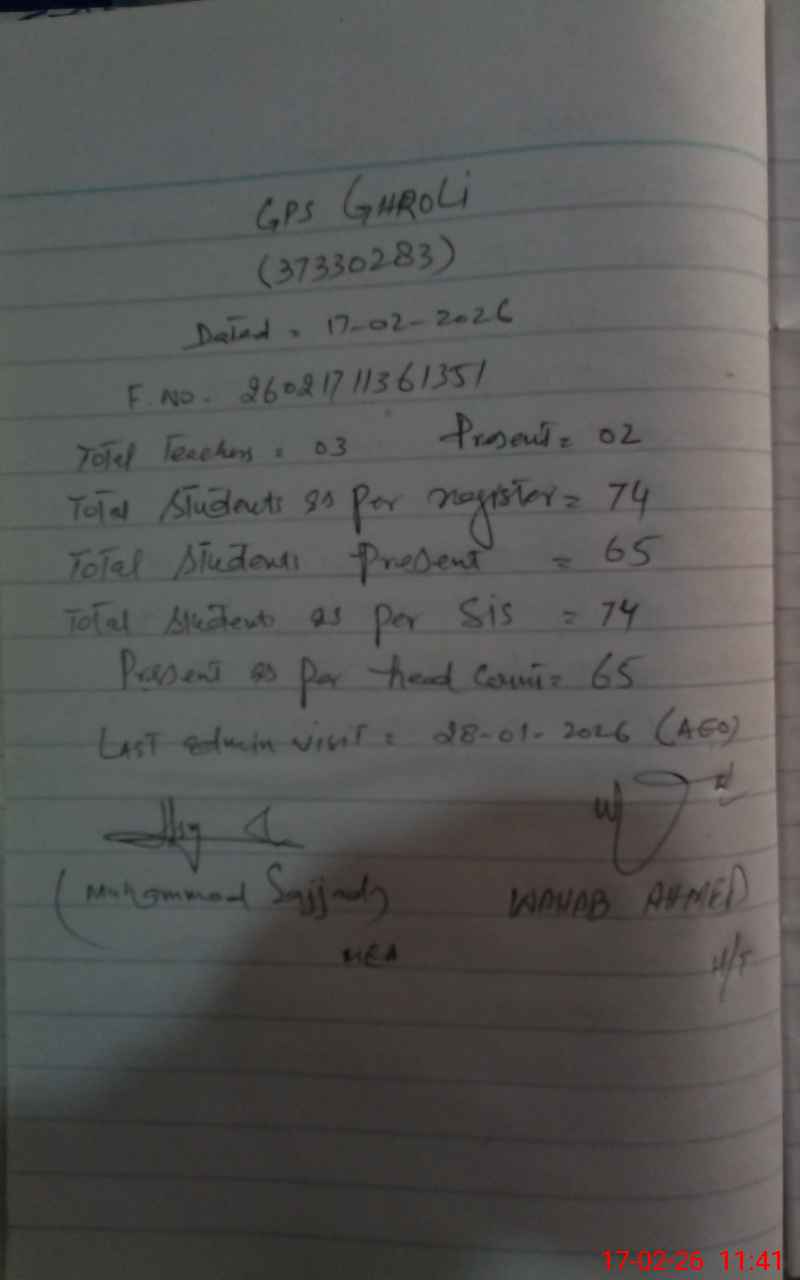 GPS GHROLi
(37330283)
Dated = 17-02-2026
F. No. 26021711361351
Total Teachers = 03 Present = 02
Total Students as per register = 74
Total Students Present = 65
Total Students as per Sis = 74
Present as per head Count = 65
Last admin visit = 28-01-2026 (AEO)
(Muhammad Sajjad) WAHAB AHMED
MEA H/T
17-02-26 11:41